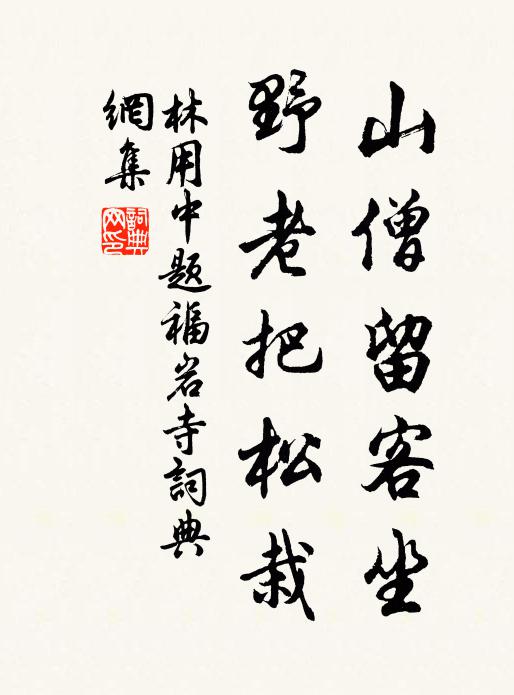 山僧留客坐
野老把松栽
林用中题福岩寺詞典
網集
詞典网印